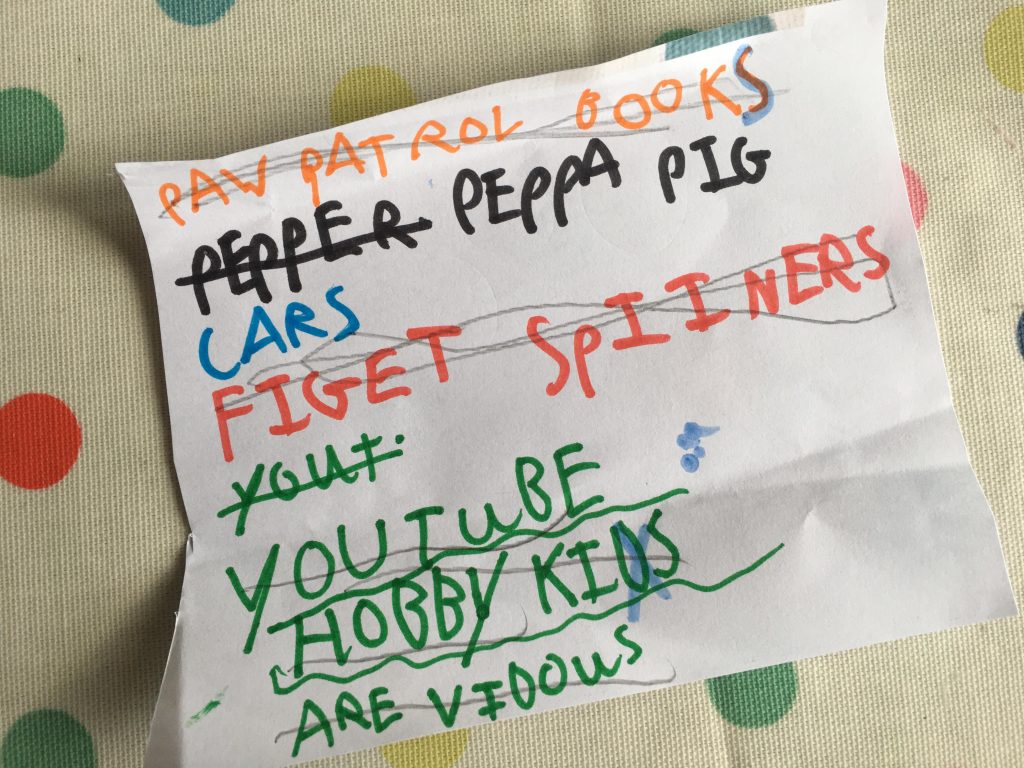 PAW PATROL BOOKS
PEPPER PEPPA PIG
CARS
FIGET SPIINERS
YOUT.
YOUTUBE
HOBBY KIDS
ARE VIDOUS